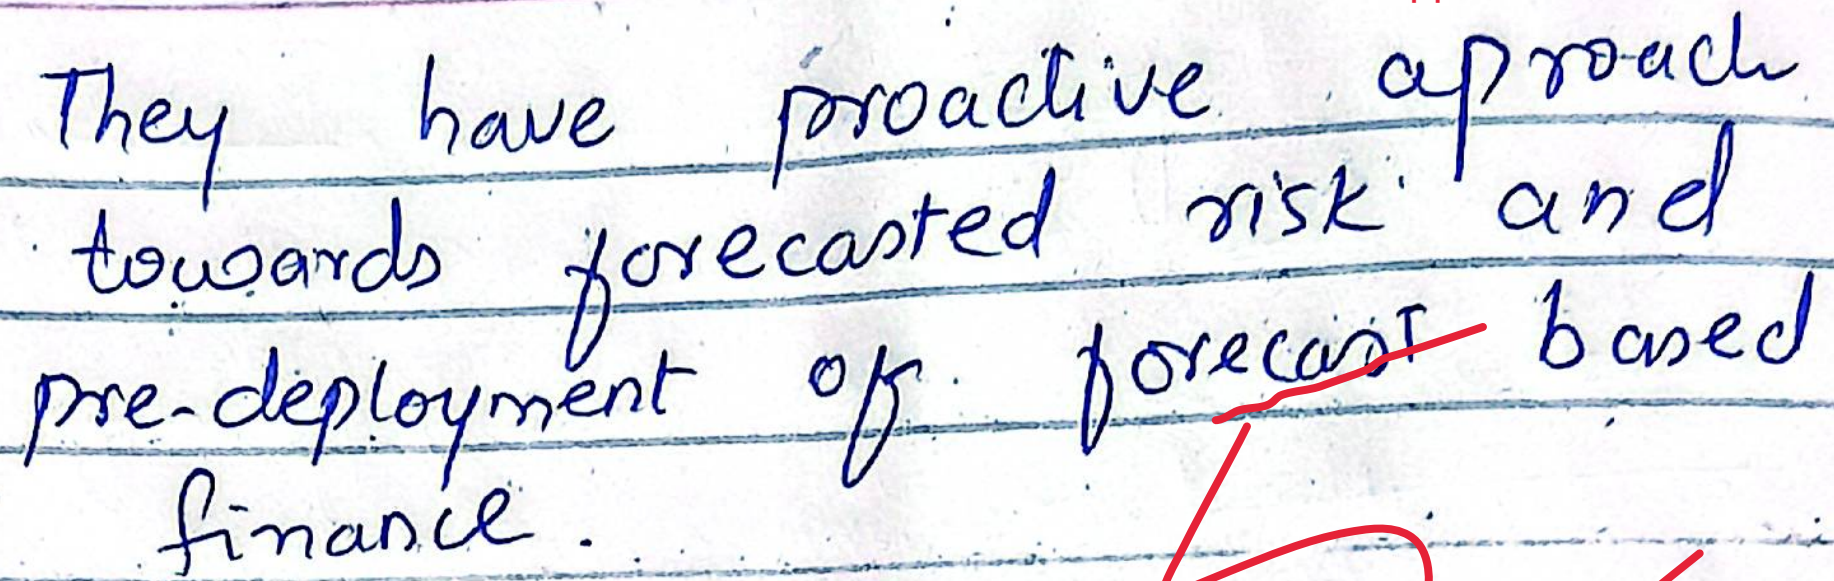 They have proactive aproach
towards forecasted risk and
pre-deployment of forecast based
finance.